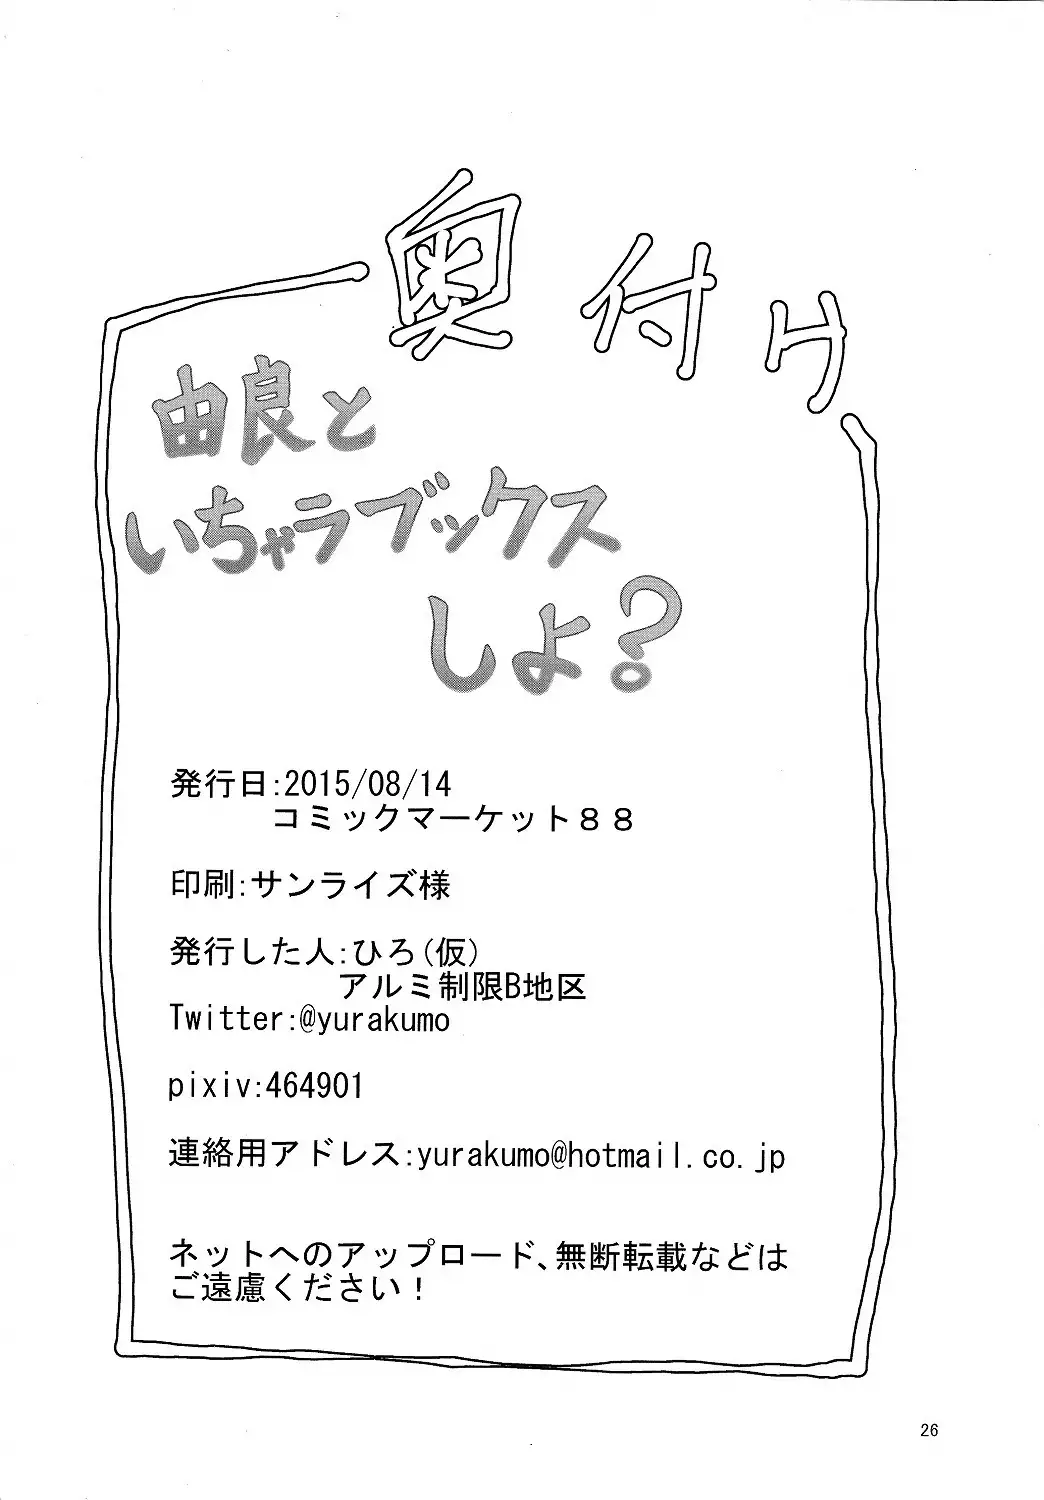 奥付け
由良と
いちゃラブックス
しよ?
発行日:2015/08/14
コミックマーケット８８
印刷:サンライズ様
発行した人:ひろ(仮)
アルミ制限B地区
Twitter:@yurakumo
pixiv:464901
連絡用アドレス:yurakumo@hotmail.co.jp
ネットへのアップロード、無断転載などは
ご遠慮ください！
26